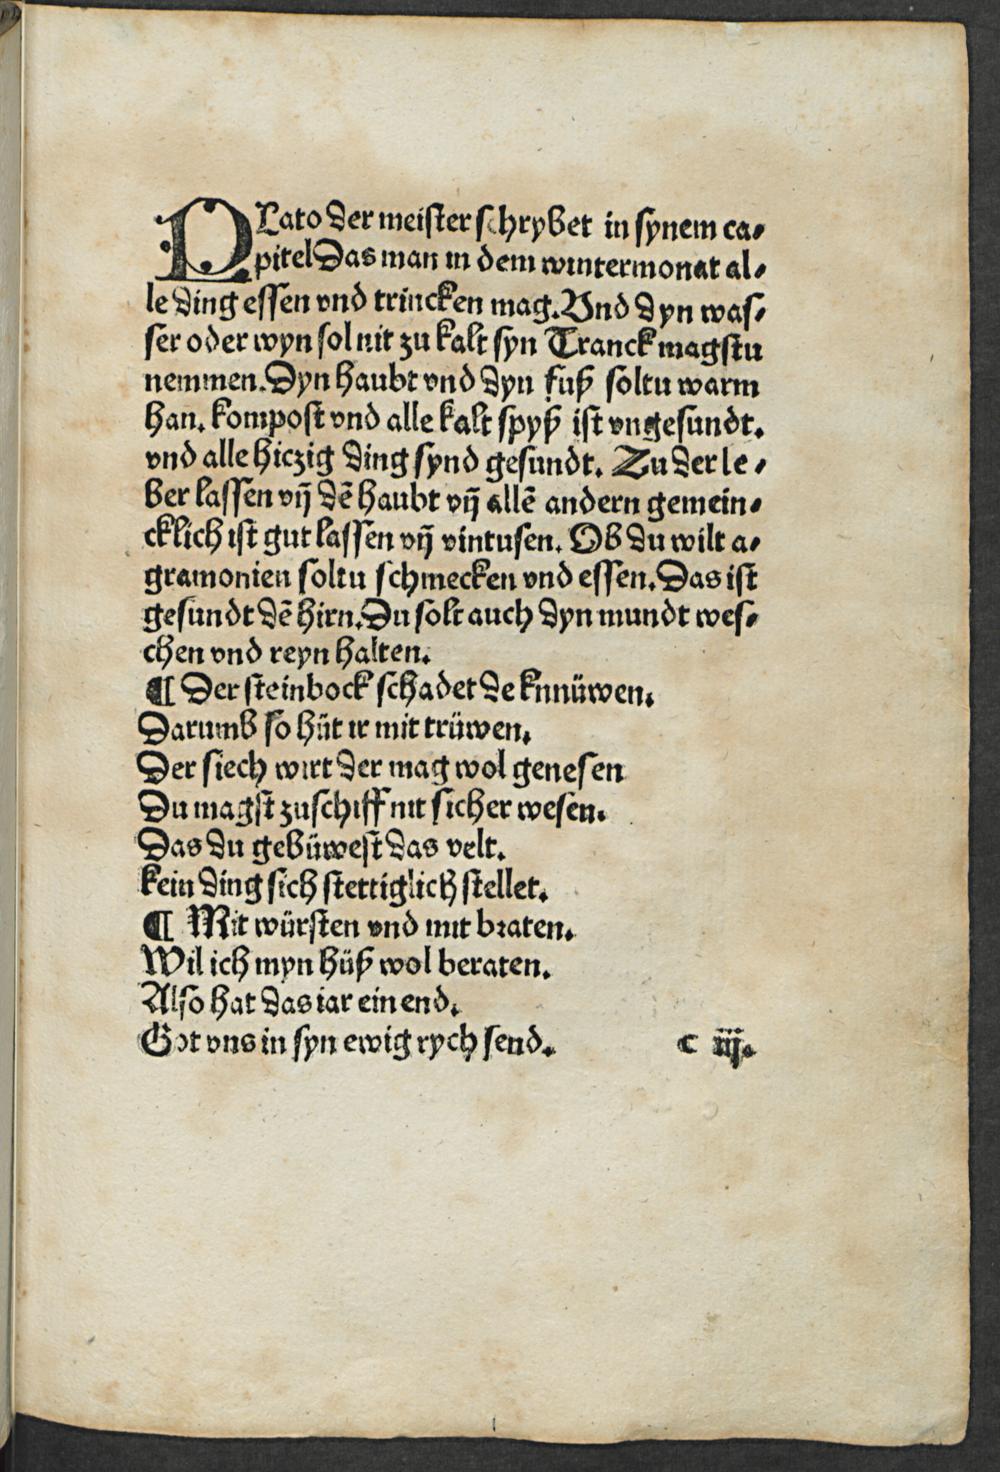 PLato der meister schrybet in synem ca⸗
pitel Das man in dem wintermonat al⸗
le ding essen vnd trincken mag. Vnd dyn was⸗
ser oder wyn sol nit zu kalt syn Tranck magstu
nemmen. Dyn haubt vnd dyn fuß soltu warm
han. kompost vnd alle kalt spyß ist vngesundt.
vnd alle hiczig ding synd gesundt. Zu der le⸗
ber lassen vn̄ dē haubt vn̄ allē andern gemein⸗
cklich ist gut lassen vn̄ vintusen. Ob du wilt a⸗
gramonien soltu schmecken vnd essen. Das ist
gesundt dē hirn. Du solt auch dyn mundt wes⸗
chen vnd reyn halten.
¶ Der steinbock schadet de knnüwen.
Darumb so hüt ir mit trüwen.
Der siech wirt der mag wol genesen
Du magst zu schiff nit sicher wesen.
Das du gebüwest das velt.
kein ding sich stettiglich stellet.
¶ Mit würsten vnd mit braten.
Wil ich myn hüß wol beraten.
Also hat das iar ein end.
Got vns in syn ewig rych send. c iij.